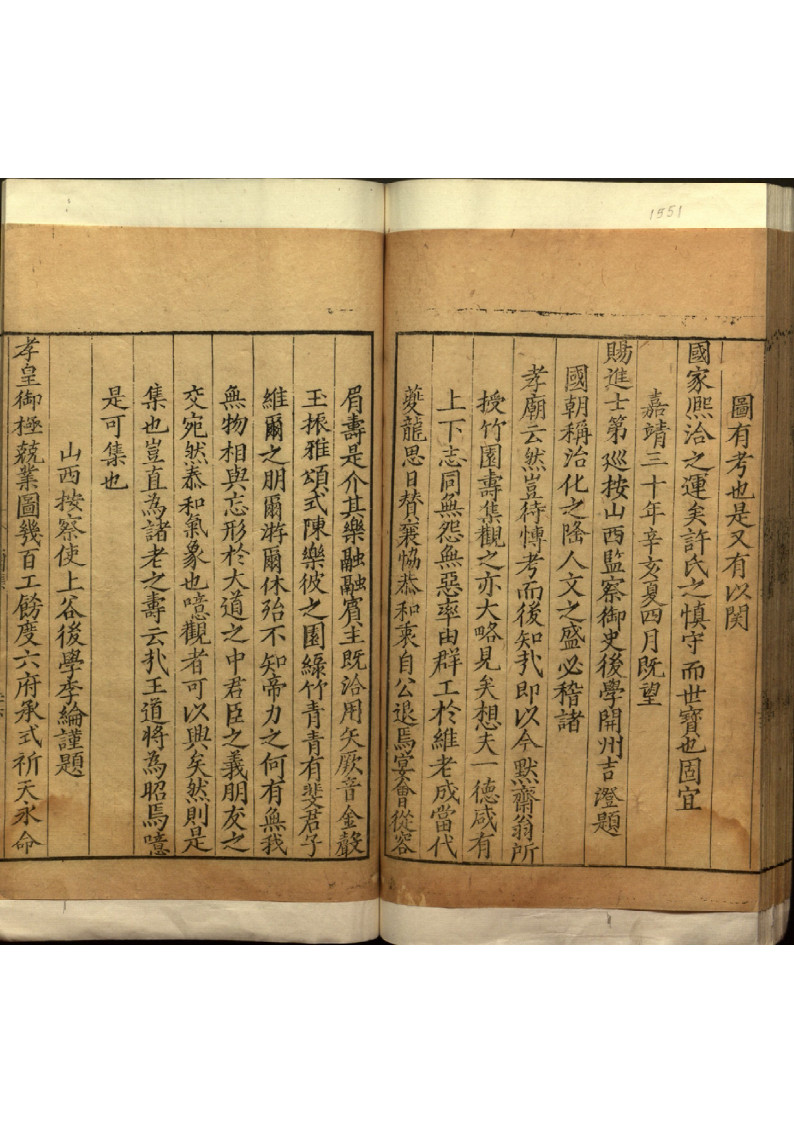 1551
圖有考也是又有以関
國家熙洽之運矣許氏之慎守而世寶也固宜
嘉靖三十年辛亥夏四月既望
賜進士第廵按山西監察御史後學開州吉澄題
國朝稱治化之隆人文之盛必稽諸
孝廟云然豈待愽考而後知㢤即以今默齋翁所
授竹園壽集觀之亦大略見矣想夫一德咸有
上下志同無怨無惡率由群工於維老成當代
夔龍思日賛襄恊恭和衷自公退焉宴會從容
眉壽是介其樂融融賓主既洽用矢厥音金聲
玉振雅頌式陳樂彼之園緑竹青青有斐君子
維爾之朋爾游爾休殆不知帝力之何有無我
無物相與忘形於大道之中君臣之義朋友之
交宛然泰和氣象也噫觀者可以興矣然則是
集也豈直為諸老之壽云㢤王道將為昭焉噫
是可集也
山西按察使上谷後學李綸謹題
孝皇御極兢業圖幾百工餝度六府承式祈天永命